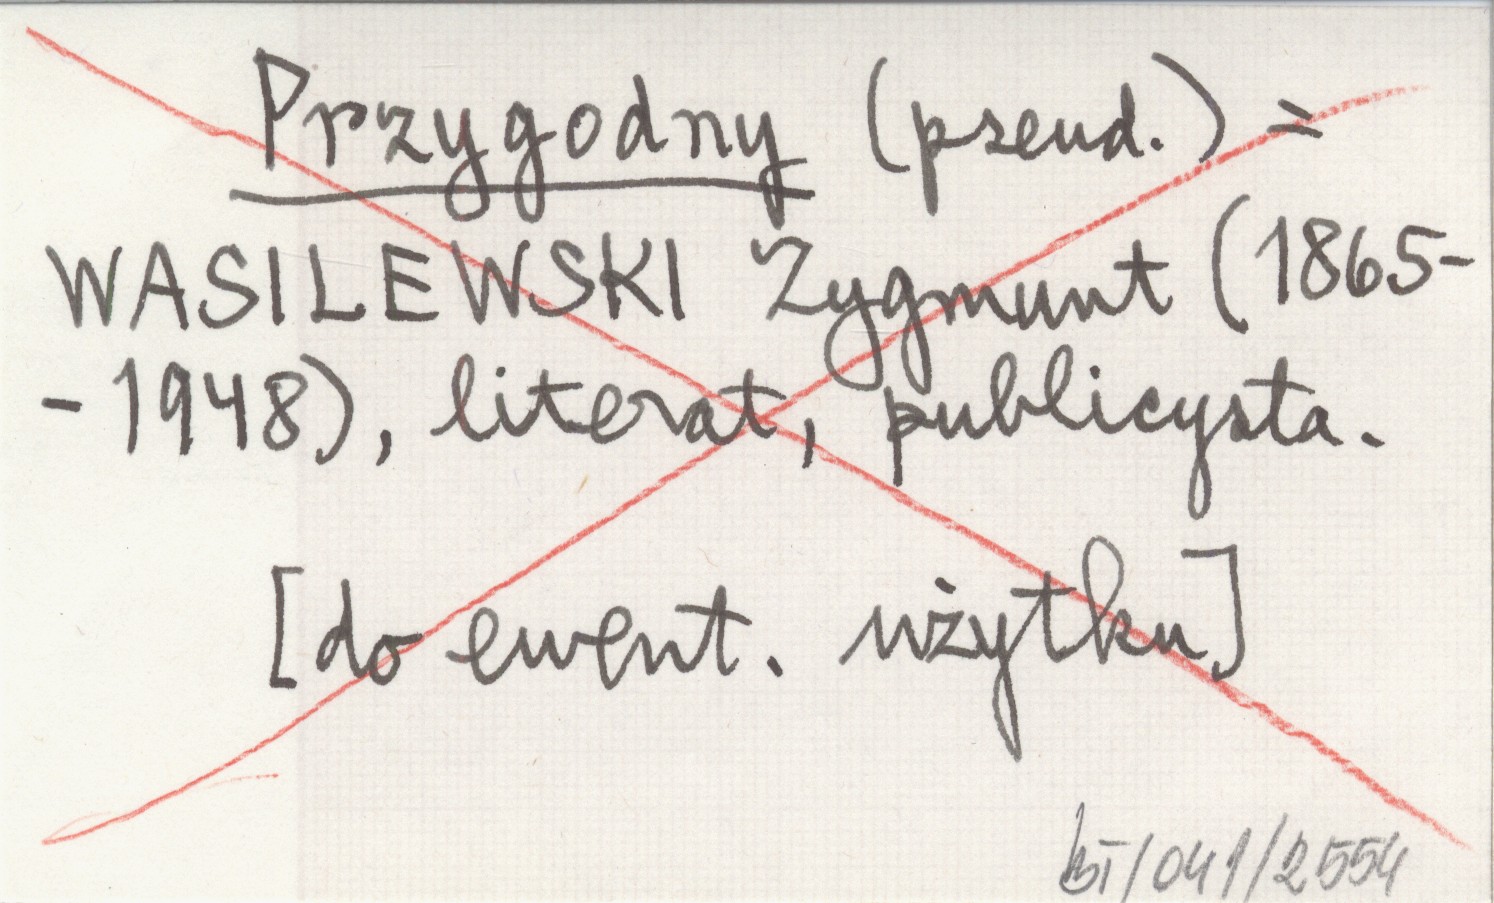 Przygodny (pseud.) =
WASILEWSKI Zygmunt (1865-
-1948), literat, publicysta.
[do ewent. użytku]
/041/2554